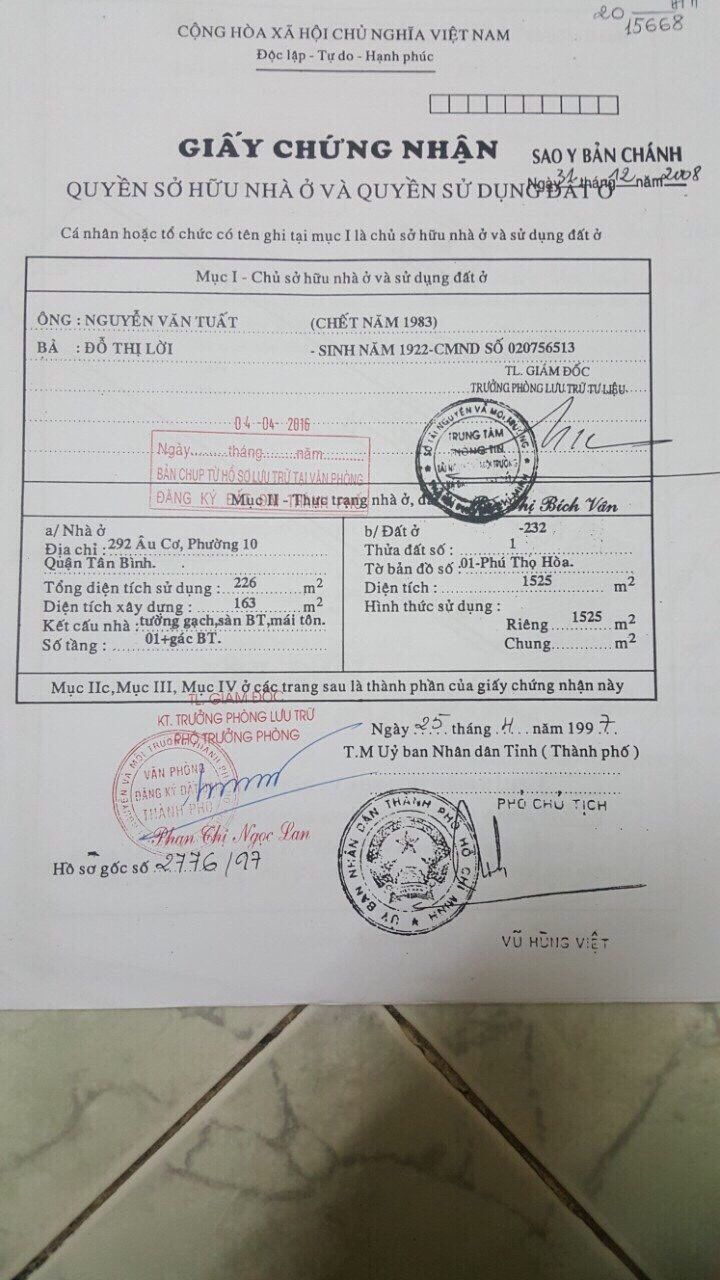 20
15668
CỘNG HÒA XÃ HỘI CHỦ NGHĨA VIỆT NAM
Độc lập - Tự do - Hạnh phúc
GIẤY CHỨNG NHẬN
SAO Y BẢN CHÁNH
QUYỀN SỞ HỮU NHÀ Ở VÀ QUYỀN SỬ DỤNG ĐẤT Ở
Ngày 31 tháng 12 năm 2008
Cá nhân hoặc tổ chức có tên ghi tại mục I là chủ sở hữu nhà ở và sử dụng đất ở
Mục I - Chủ sở hữu nhà ở và sử dụng đất ở
ÔNG : NGUYỄN VĂN TUẤT (CHẾT NĂM 1983)
BÀ : ĐỖ THỊ LỜI - SINH NĂM 1922-CMND SỐ 020756513
TL. GIÁM ĐỐC
TRƯỞNG PHÒNG LƯU TRỮ TƯ LIỆU
SỞ TÀI NGUYÊN VÀ MÔI TRƯỜNG
TRUNG TÂM
04 -04- 2016
Ngày.........tháng.........năm.........
BẢN CHỤP TỪ HỒ SƠ LƯU TRỮ TẠI VĂN PHÒNG
ĐĂNG KÝ
Mục II - Thực trạng nhà ở,
Bích Vân
a/ Nhà ở
Địa chỉ : 292 Âu Cơ, Phường 10
Quận Tân Bình.
Tổng diện tích sử dụng : 226 m2
Diện tích xây dựng : 163 m2
Kết cấu nhà : tường gạch,sàn BT,mái tôn.
Số tầng : 01+gác BT.
b/ Đất ở -232
Thửa đất số : 1
Tờ bản đồ số .01-Phú Thọ Hòa.
Diện tích : 1525 m2
Hình thức sử dụng :
Riêng 1525 m2
Chung m2
Mục IIc,Mục III, Mục IV ở các trang sau là thành phần của giấy chứng nhận này
TL. GIÁM ĐỐC
KT. TRƯỞNG PHÒNG LƯU TRỮ
PHÓ TRƯỞNG PHÒNG
VĂN PHÒNG
ĐĂNG KÝ ĐẤT
THÀNH PHỐ
Phan Thị Ngọc Lan
Hồ sơ gốc số 2776/97
Ngày 25 tháng 4 năm 1997.
T.M Uỷ ban Nhân dân Tỉnh ( Thành phố )
PHÓ CHỦ TỊCH
ỦY BAN NHÂN DÂN THÀNH PHỐ HỒ CHÍ MINH
VŨ HÙNG VIỆT